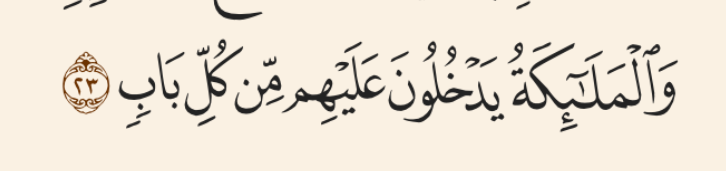 وَٱلْمَلَـٰٓئِكَةُ يَدْخُلُونَ عَلَيْهِم مِّن كُلِّ بَابٍ ٢٣